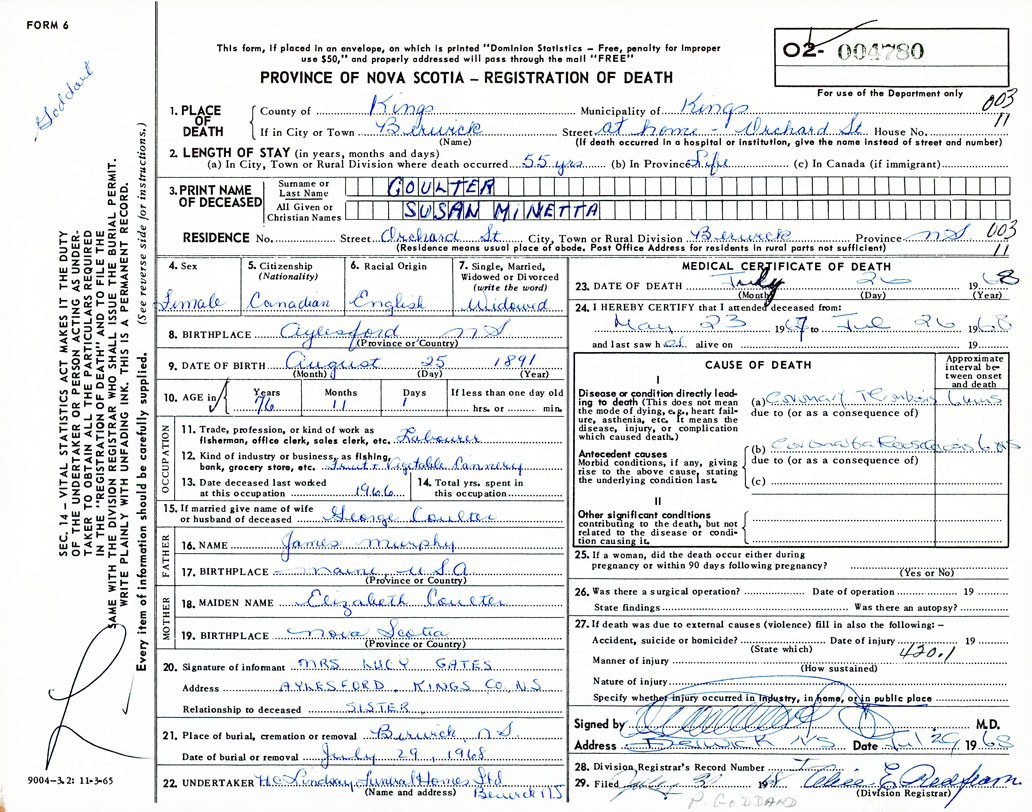 FORM 6
This form, if placed in an envelope, on which is printed "Dominion Statistics – Free, penalty for improper
use $50," and properly addressed will pass through the mail "FREE"
PROVINCE OF NOVA SCOTIA – REGISTRATION OF DEATH
02- 004780
For use of the Department only
Goddart
003
11
1. PLACE OF DEATH
County of Kings Municipality of Kings
If in City or Town Berwick Street at home - Orchard St. House No.
(Name) (If death occurred in a hospital or institution, give the name instead of street and number)
2. LENGTH OF STAY (in years, months and days)
(a) In City, Town or Rural Division where death occurred 55 yrs (b) In Province Life (c) In Canada (if immigrant)
3. PRINT NAME OF DECEASED
Surname or Last Name COULTER
All Given or Christian Names SUSAN MINETTA
RESIDENCE No. Street Orchard St City, Town or Rural Division Berwick Province NS
(Residence means usual place of abode. Post Office Address for residents in rural parts not sufficient)
003
11
4. Sex
Female
5. Citizenship
(Nationality)
Canadian
6. Racial Origin
English
7. Single, Married,
Widowed or Divorced
(write the word)
Widowed
8. BIRTHPLACE Aylesford NS
(Province or Country)
9. DATE OF BIRTH August 25 1891
(Month) (Day) (Year)
10. AGE in
Years Months Days If less than one day old
76 11 1 hrs. or min.
OCCUPATION
11. Trade, profession, or kind of work as
fisherman, office clerk, sales clerk, etc. Labourer
12. Kind of industry or business, as fishing,
bank, grocery store, etc. Fruit & Vegetable Cannery
13. Date deceased last worked
at this occupation 1966
14. Total yrs. spent in
this occupation
15. If married give name of wife
or husband of deceased George Coulter
FATHER
16. NAME James Murphy
17. BIRTHPLACE Maine, USA
(Province or Country)
MOTHER
18. MAIDEN NAME Elizabeth Coulter
19. BIRTHPLACE Nova Scotia
(Province or Country)
20. Signature of informant MRS LUCY GATES
Address AYLESFORD, KINGS CO, N.S
Relationship to deceased SISTER
21. Place of burial, cremation or removal Berwick, N.S.
Date of burial or removal July 29, 1968
22. UNDERTAKER H.C. Lindsay Funeral Homes Ltd
(Name and address) Berwick NS
MEDICAL CERTIFICATE OF DEATH
23. DATE OF DEATH July 26 1968
(Month) (Day) (Year)
24. I HEREBY CERTIFY that I attended deceased from:
May 23 1967 to Jul 26 1968
and last saw her alive on 19
CAUSE OF DEATH
Approximate interval between onset and death
I
Disease or condition directly leading to death (This does not mean the mode of dying, e.g., heart failure, asthenia, etc. It means the disease, injury, or complication which caused death.)
(a) Coronary
due to (or as a consequence of)
Antecedent causes
Morbid conditions, if any, giving rise to the above cause, stating the underlying condition last.
(b)
due to (or as a consequence of)
(c)
II
Other significant conditions
contributing to the death, but not related to the disease or condition causing it.
25. If a woman, did the death occur either during
pregnancy or within 90 days following pregnancy?
(Yes or No)
26. Was there a surgical operation? Date of operation 19
State findings Was there an autopsy?
27. If death was due to external causes (violence) fill in also the following: –
Accident, suicide or homicide? Date of injury 19
(State which)
420.1
Manner of injury
(How sustained)
Nature of injury
Specify whether injury occurred in industry, in home, or in public place
Signed by M.D.
Address BERWICK NS Date Jul 29 1968
28. Division Registrar's Record Number
29. Filed 1968
(Division Registrar)
P. GODDARD
SEC. 14 – VITAL STATISTICS ACT MAKES IT THE DUTY
OF THE UNDERTAKER OR PERSON ACTING AS UNDER-
TAKER TO OBTAIN ALL THE PARTICULARS REQUIRED
IN THE "REGISTRATION OF DEATH" AND TO FILE THE
SAME WITH THE DIVISION REGISTRAR WHO SHALL ISSUE THE BURIAL PERMIT.
WRITE PLAINLY WITH UNFADING INK. THIS IS A PERMANENT RECORD.
Every item of information should be carefully supplied. (See reverse side for instructions.)
9004-3.2: 11-3-65